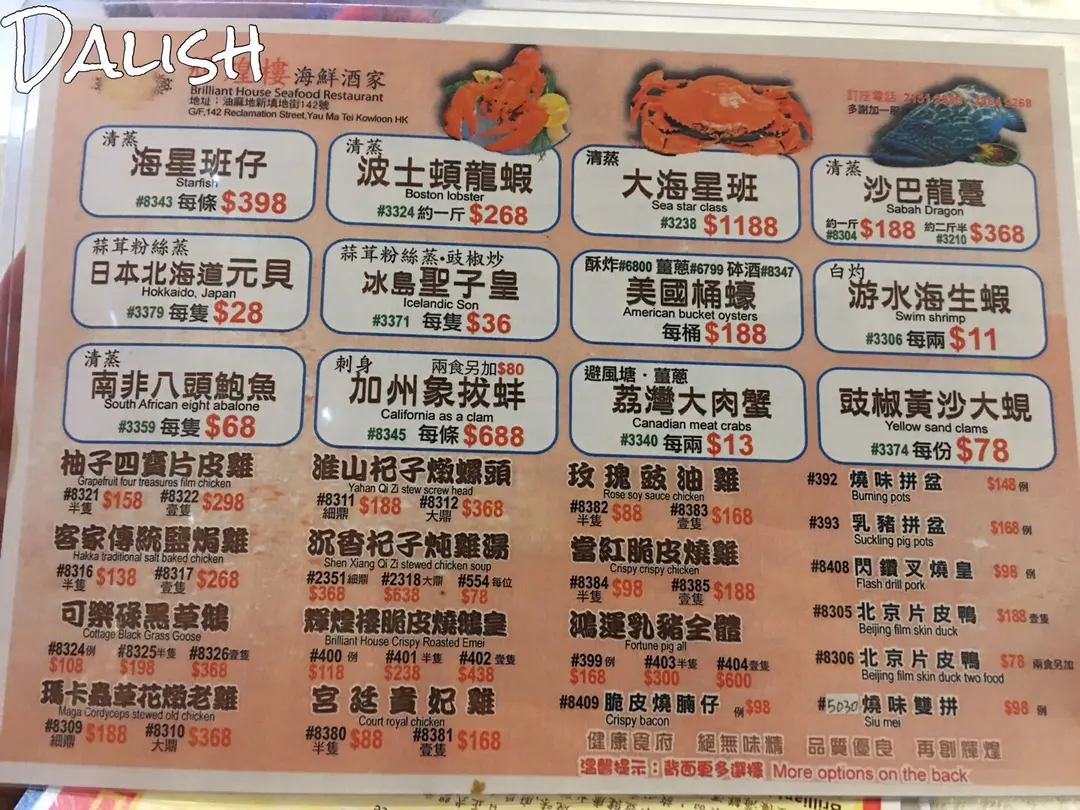 DALISH
煌樓 海鮮酒家
Brilliant House Seafood Restaurant
地址：油麻地新填地街142號
G/F,142 Reclamation Street,Yau Ma Tei Kowloon HK
訂座電話
多謝加一
清蒸
海星班仔
Starfish
#8343 每條 $398
清蒸
波士頓龍蝦
Boston lobster
#3324 約一斤 $268
清蒸
大海星班
Sea star class
#3238 $1188
清蒸
沙巴龍躉
Sabah Dragon
約一斤 #8304 $188 約二斤半 #3210 $368
蒜茸粉絲蒸
日本北海道元貝
Hokkaido, Japan
#3379 每隻 $28
蒜茸粉絲蒸·豉椒炒
冰島聖子皇
Icelandic Son
#3371 每隻 $36
酥炸#6800 薑蔥#6799 砵酒#8347
美國桶蠔
American bucket oysters
每桶 $188
白灼
游水海生蝦
Swim shrimp
#3306 每兩 $11
清蒸
南非八頭鮑魚
South African eight abalone
#3359 每隻 $68
刺身 兩食另加$80
加州象拔蚌
California as a clam
#8345 每條 $688
避風塘·薑蔥
荔灣大肉蟹
Canadian meat crabs
#3340 每兩 $13
豉椒黃沙大蜆
Yellow sand clams
#3374 每份 $78
柚子四寶片皮雞
Grapefruit four treasures film chicken
#8321 半隻 $158 #8322 壹隻 $298
客家傳統鹽焗雞
Hakka traditional salt baked chicken
#8316 半隻 $138 #8317 壹隻 $268
可樂碌黑草鵝
Cottage Black Grass Goose
#8324例 #8325半隻 #8326壹隻
$108 $198 $368
瑪卡蟲草花燉老雞
Maga Cordyceps stewed old chicken
#8309 細鼎 $188 #8310 大鼎 $368
淮山杞子燉螺頭
Yahan Qi Zi stew screw head
#8311 細鼎 $188 #8312 大鼎 $368
沉香杞子炖雞湯
Shen Xiang Qi Zi stewed chicken soup
#2351細鼎 #2318大鼎 #554每位
$368 $638 $78
輝煌樓脆皮燒鵝皇
Brilliant House Crispy Roasted Emei
#400 例 #401 半隻 #402 壹隻
$118 $238 $438
宮廷貴妃雞
Court royal chicken
#8380 半隻 $88 #8381 壹隻 $168
玫瑰豉油雞
Rose soy sauce chicken
#8382 半隻 $88 #8383 壹隻 $168
當紅脆皮燒雞
Crispy crispy chicken
#8384 半隻 $98 #8385 壹隻 $188
鴻運乳豬全體
Fortune pig all
#399例 #403半隻 #404壹隻
$168 $300 $600
#8409 脆皮燒腩仔 例$98
Crispy bacon
#392 燒味拼盆 $148 例
Burning pots
#393 乳豬拼盆 $168 例
Suckling pig pots
#8408 閃鑽叉燒皇 $98 例
Flash drill pork
#8305 北京片皮鴨 $188 壹隻
Beijing film skin duck
#8306 北京片皮鴨 $78 兩食另加
Beijing film skin duck two food
#5030 燒味雙拼 $98 例
Siu mei
健康食府 絕無味精 品質優良 再創輝煌
溫馨提示：背面更多選擇 More options on the back